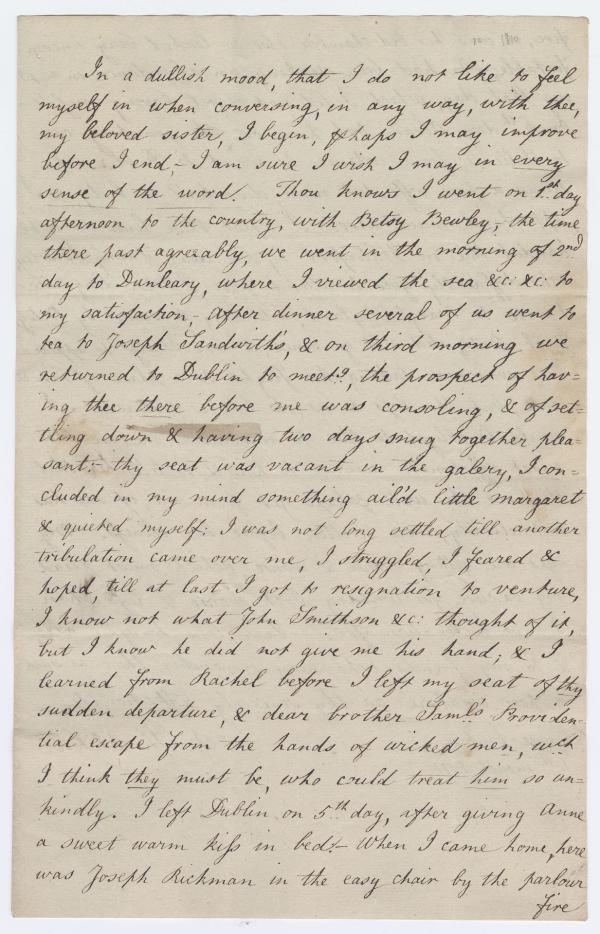 In a dullish mood, that I do not like to feel
myself in when conversing, in any way, with thee,
my beloved sister, I begin, phaps I may improve
before I end,- I am sure I wish I may in every
sense of the word. Thou knows I went on 1.st day
afternoon to the country, with Betsy Bewley,- the time
there past agreeably, we went in the morning of 2nd
day to Dunleary, where I viewed the sea &c: &c: to
my satisfaction,- after dinner several of us went to
tea to Joseph Sandwith's, & on third morning we
returned to Dublin to meetg, the prospect of hav=
ing thee there before me was consoling, & of set=
tling down & having two days snug together plea=
sant:- thy seat was vacant in the galery, I con=
cluded in my mind something ail'd little margaret
& quieted myself; I was not long settled till another
tribulation came over me, I struggled, I feared &
hoped, till at last I got to resignation to venture,
I know not what John Smithson &c: thought of it,
but I know he did not give me his hand; & I
learned from Rachel before I left my seat of thy
sudden departure, & dear brother Saml's Providen=
tial escape from the hands of wicked men, wch
I think they must be, who could treat him so un=
kindly. I left Dublin on 5th day, after giving Anne
a sweet warm kiss in bed:- When I came home, here
was Joseph Rickman in the easy chair by the parlour
fire